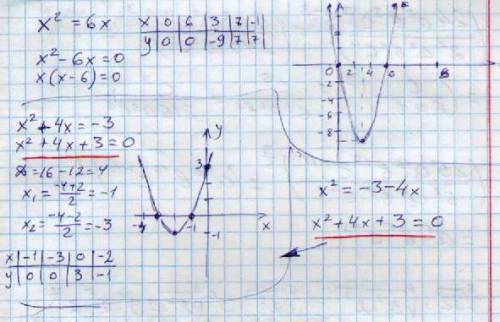 x² = 6x
x² - 6x = 0
x(x-6) = 0
x | 0 | 6 | 3 | 7 | -1
y | 0 | 0 | -9 | 7 | 7
0 2 4 6 8
-2
-4
-6
-8
x² + 4x = -3
x² + 4x + 3 = 0
D = 16 - 12 = 4
x₁ = (-4+2)/2 = -1
x₂ = (-4-2)/2 = -3
x | -1 | -3 | 0 | -2
y | 0 | 0 | 3 | -1
y
3
-1
-1
x
x² = -3 - 4x
x² + 4x + 3 = 0